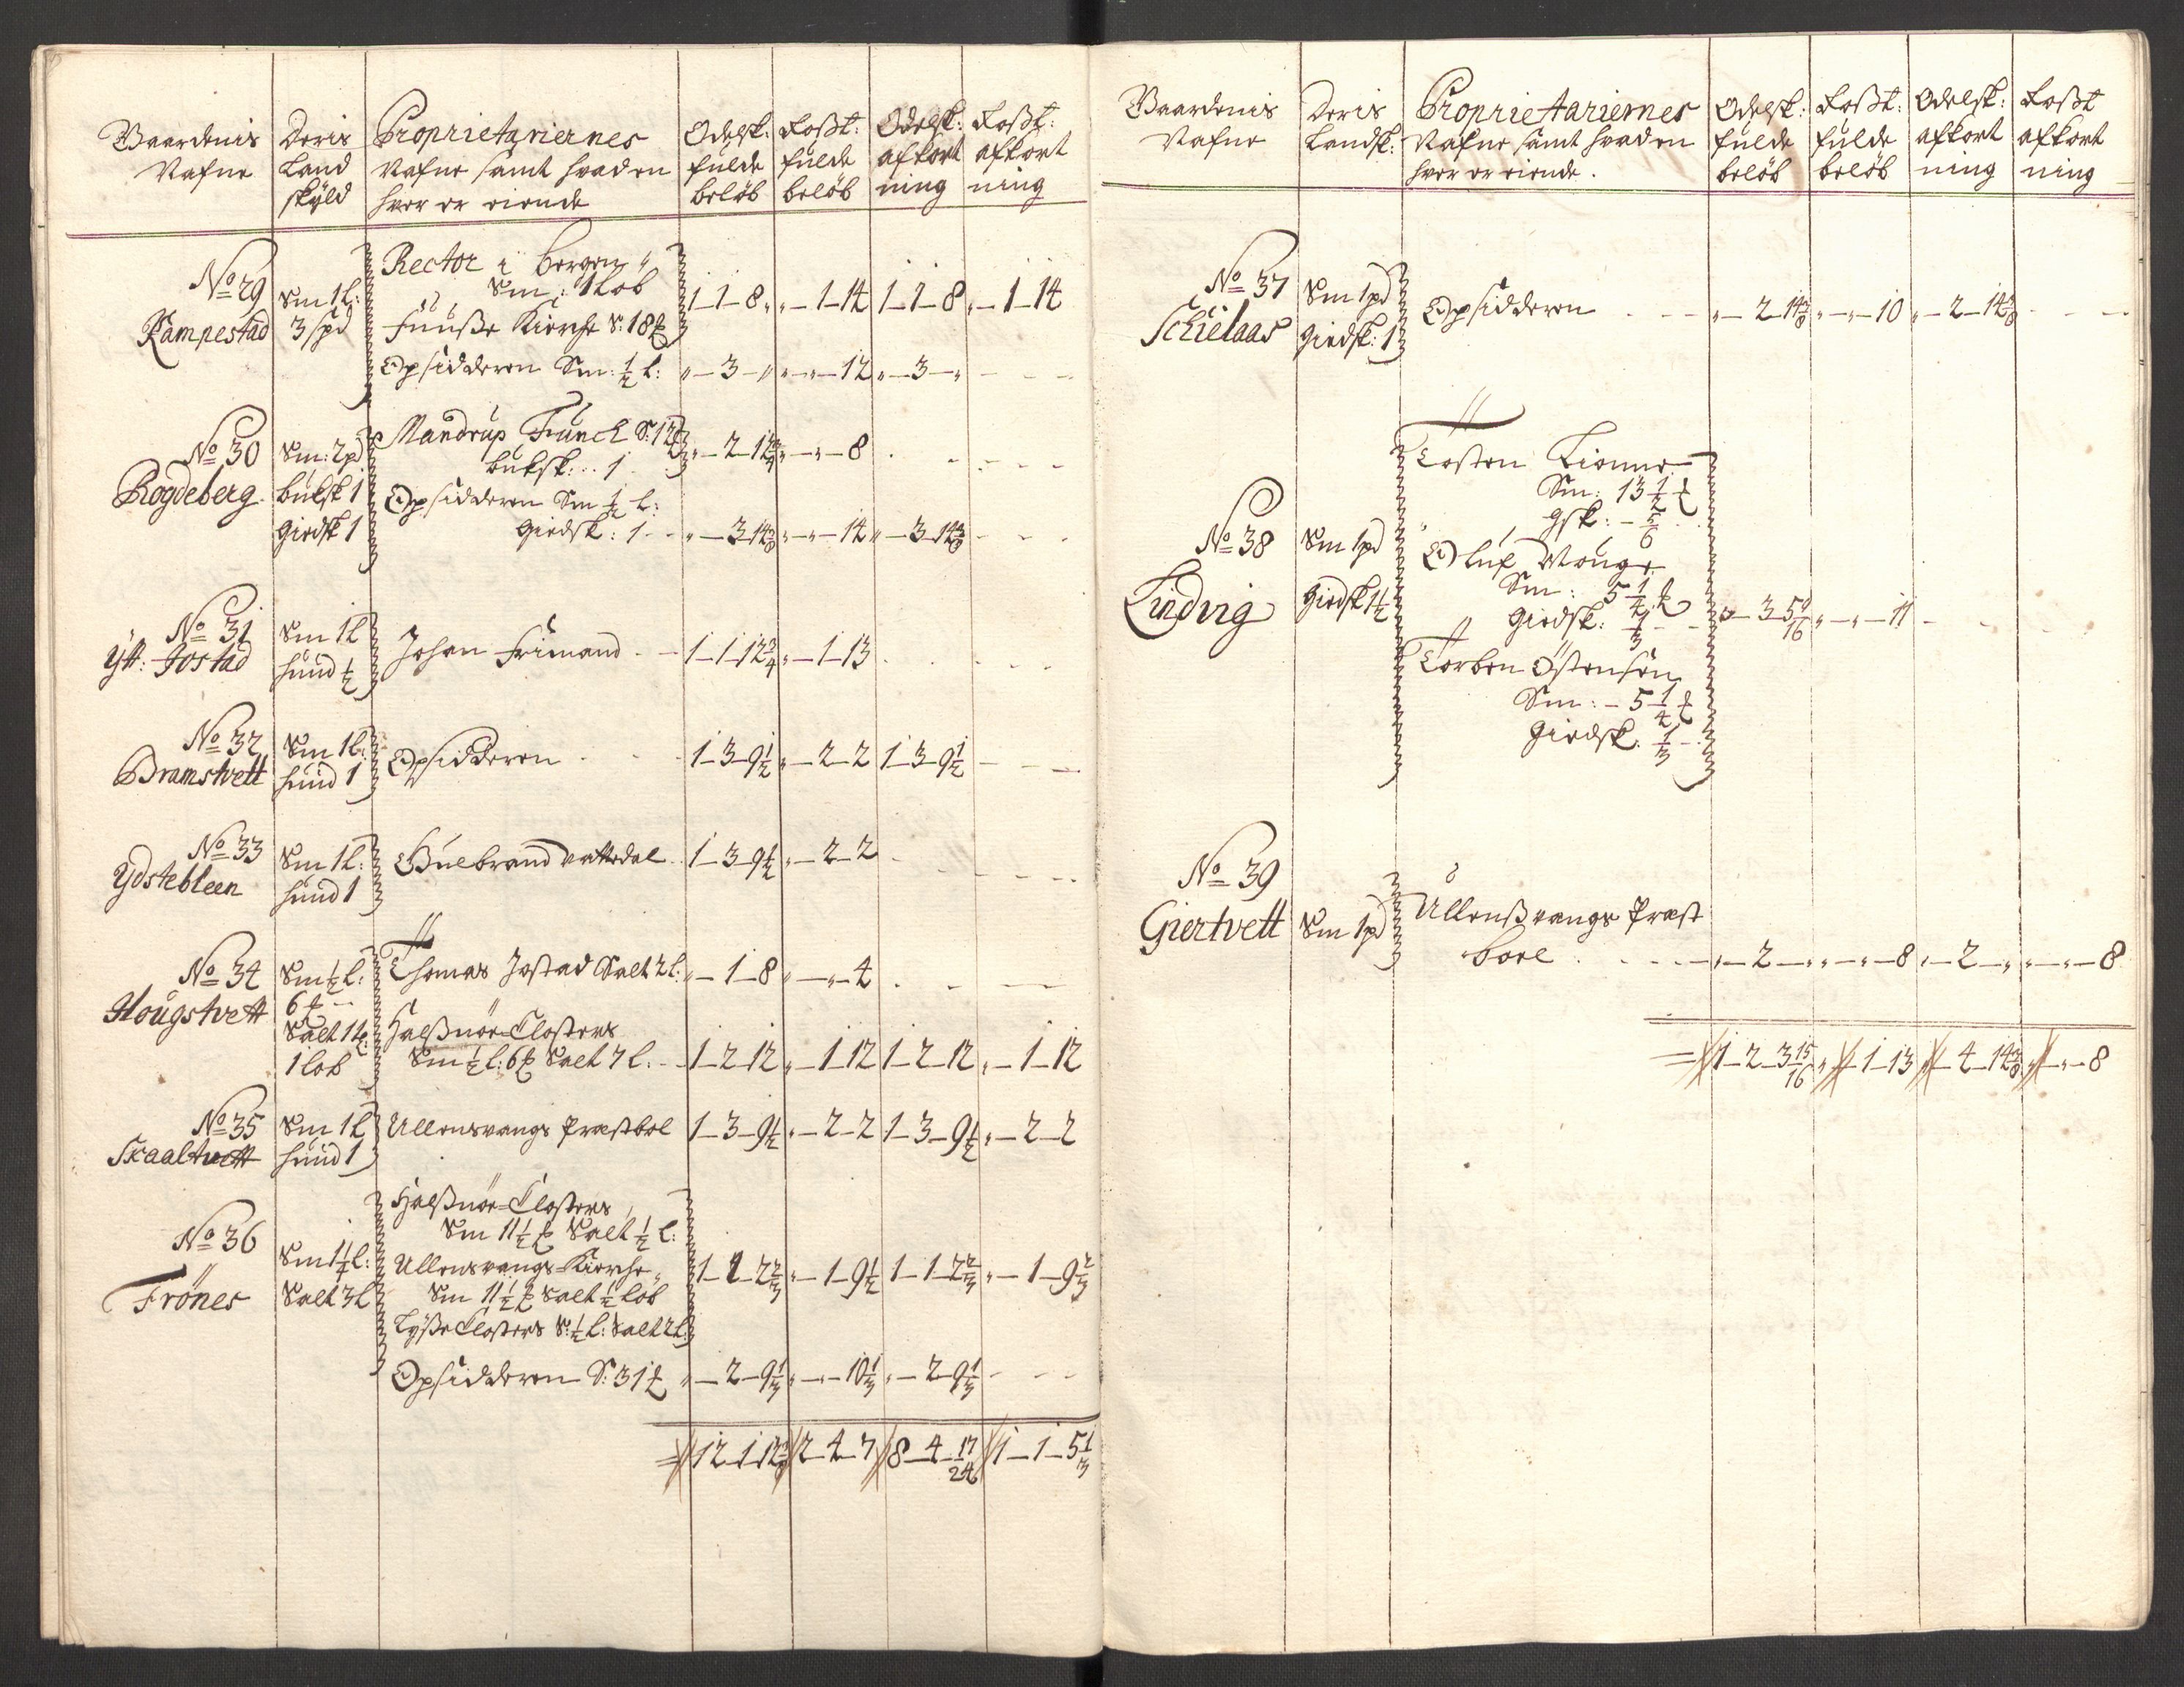 Gaardenis Nafne
Deris Land skyld
Proprietariernes Nafne samt hvad en hver er eiende
Odelsk: fulde beløb
Loßt: fulde beløb
Odelsk: afkort ning
Loßt: afkort ning
No 29 Rampestad
Sm 1 l: 3 spd
Rector i bergen
Sm: 1 Løb
Fuuße Kierche S: 18 ℔
1-1-8 „-1-14 1-1-8 „-1-14
Opsidderen Sm: ½ l: „-3-„ „-„-12 „-3-„
No 30 Rogdeberg
Sm: 2 pd
buksk 1
Giedsk 1
Mandrup Funck S: 12 ℔
buksk: .. 1
„-2-12¾ „-„-8
Opsidderen Sm ½ l:
Giedsk: 1 „-3-14⅜ „-„-14 „-3-14⅜
No 31 Ytt: Jostad
Sm 1 l
hund ½
Johan Frimand 1-1-12¾ „-1-13
No 32 Bramstvett
Sm 1 l:
hund 1
Opsidderen 1-3-9½ „-2-2 1-3-9½
No 33 Ydstebleen
Sm 1 l:
hund 1
Gulbrand vattedal 1-3-9½ „-2-2
No 34 Hougstvett
Sm ½ l:
6 ℔
Salt 1 t:
1 løb
Thomas Jostad Salt 2 l: „-1-8 „-„-4
Halßnøe Closters
Sm ½ l: 6 ℔ Salt 7 l: 1-2-12 „-1-12 1-2-12 „-1-12
No 35 Skaaltvett
Sm 1 l
hund 1
Ullensvangs Præstbol 1-3-9½ „-2-2 1-3-9½ „-2-2
No 36 Frönes
Sm 1¼ l:
Salt 3 l
Halßnøe Closters
Sm 11½ ℔ Salt ½ l:
Ullensvangs Kierche
Sm 11½ ℔ Salt ½ løb
Lyße Closters S: ½ l: Salt 2 l:
1-1-2⅔ „-1-9½ 1-1-2⅔ „-1-9⅔
Opsidderen S: 31 ℔ „-2-9⅓ „-„-10⅓ „-2-9⅓
12-1-12⅜ 2-4-7 8-4-17/24 1-1-5⅓
Gaardenis Nafne
Deris Landsk:
Proprietariernes Nafne samt hvad en hver er eiende.
Odelsk: fulde beløb
Loßt: fulde beløb
Odelsk: afkort ning
Loßt afkort ning
No 37 Schielaas
Sm 1 pd
Giedsk: 1
Opsidderen „-2-14⅜ „-„-10 „-2-14⅜
No 38 Lindvig
Sm 1 pd
Giedsk 1½
Tosten
Sm: 13½ ℔
Gsk: - 5/6
Oluf Mouge
Sm: 5¼ ℔
Giedsk: ⅓
Torben Östensen
Sm: - 5¼ ℔
Giedsk. ⅓
„-3-5 9/16 „-„-11
No 39 Giertvett
Sm 1 pd
Ullensvangs Præst
boel „-2-„ „-„-8 „-2-„ „-„-8
1-2-3 15/16 „-1-13 „-4-14⅜ „-„-8